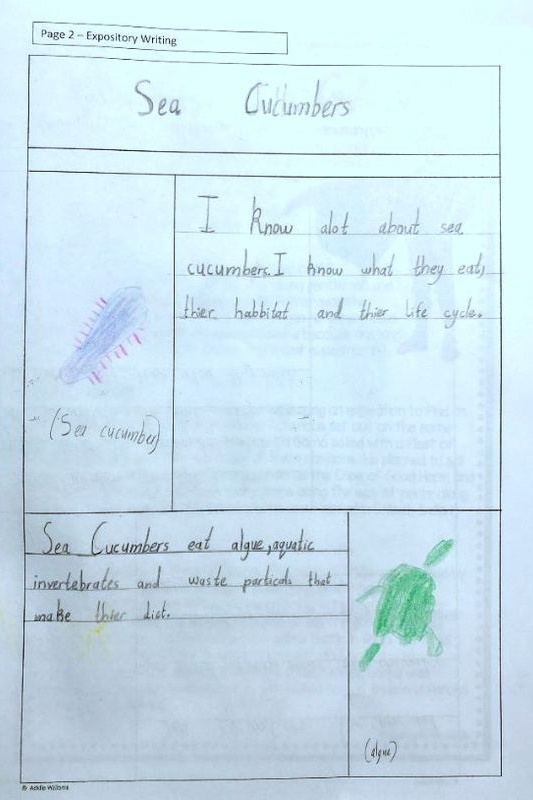 Page 2 – Expository Writing
Sea Cucumbers
I know alot about sea
cucumbers. I know what they eat,
thier habbitat and thier life cycle.
(Sea cucumber)
Sea Cucumbers eat algue, aquatic
invertebrates and waste particals that
make thier diet.
(algue)
© Addie Williams